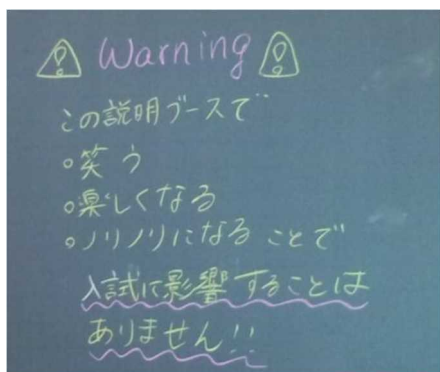 ⚠ Warning ⚠
この説明ブースで
○笑う
○楽しくなる
○ノリノリになることで
入試に影響することは
ありません!!